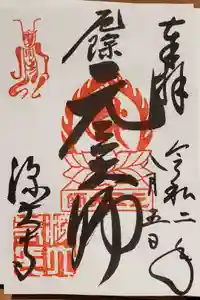 奉拝
令和二年
八月五日
厄除
元三大師
深大寺